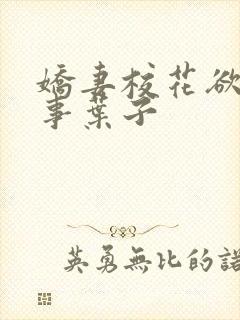 嬌妻校花欲
事葉子
英勇無比的諾